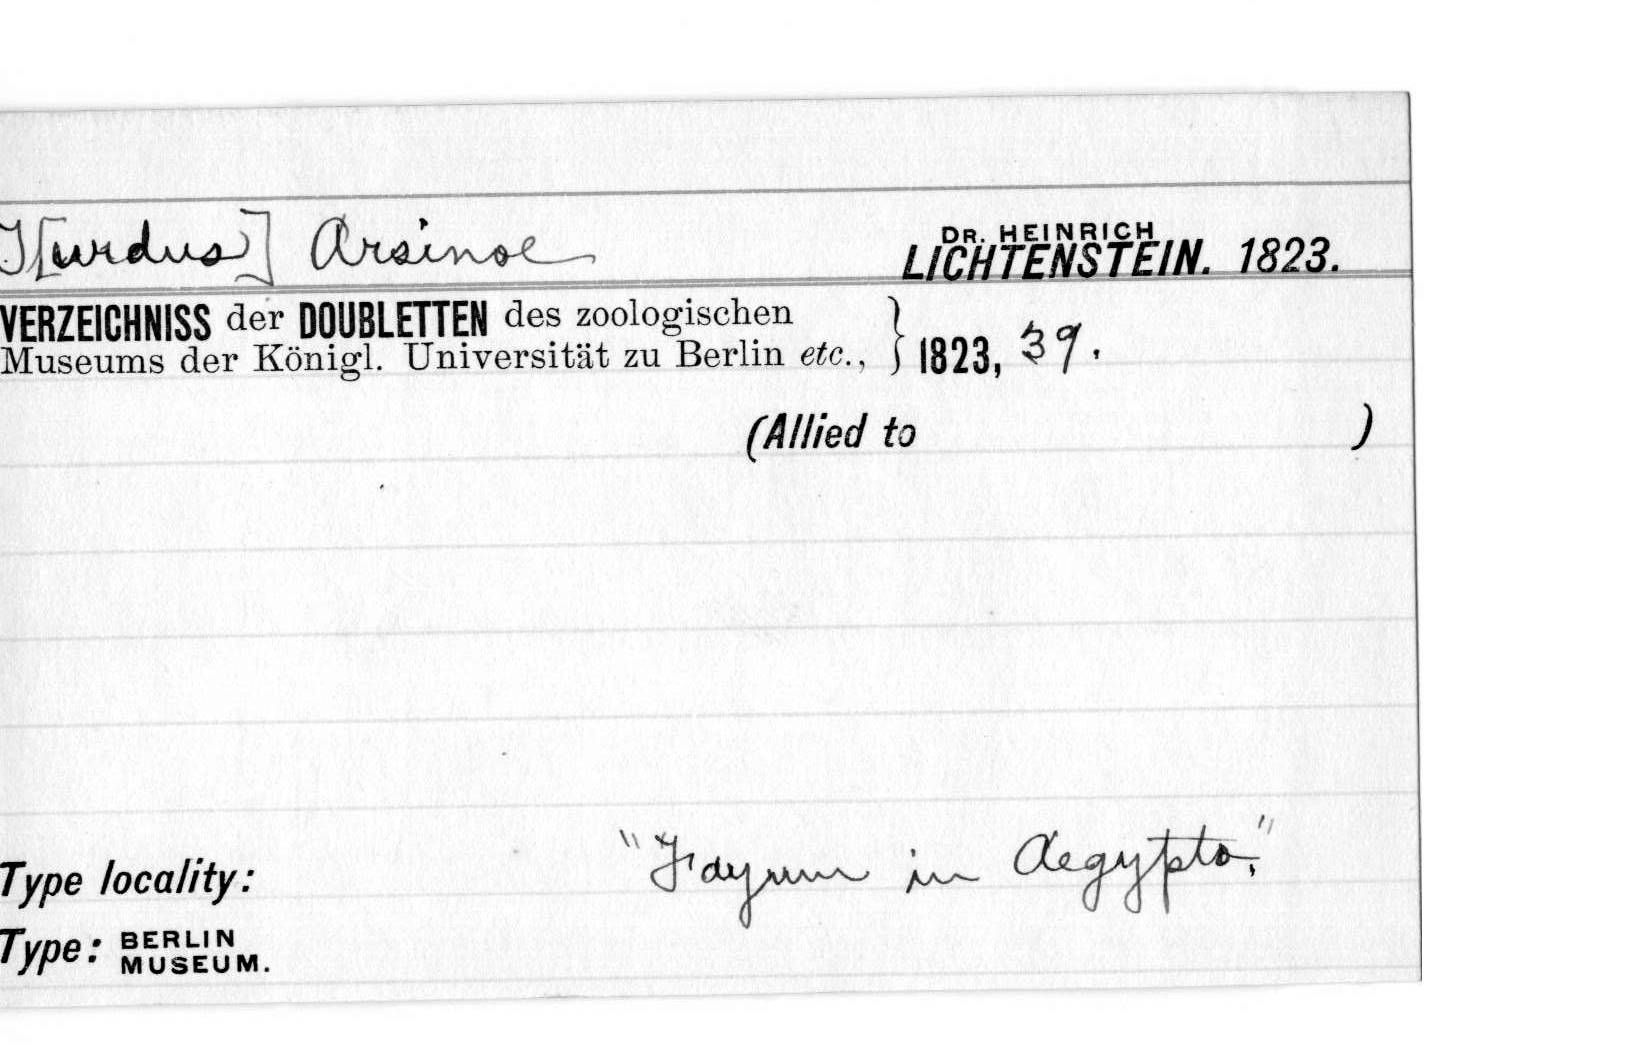 T[urdus] Arsinoe DR. HEINRICH LICHTENSTEIN. 1823.
VERZEICHNISS der DOUBLETTEN des zoologischen
Museums der Königl. Universität zu Berlin etc., } 1823, 39.
(Allied to )
Type locality: "Fayum in Aegypto,"
Type: BERLIN MUSEUM.